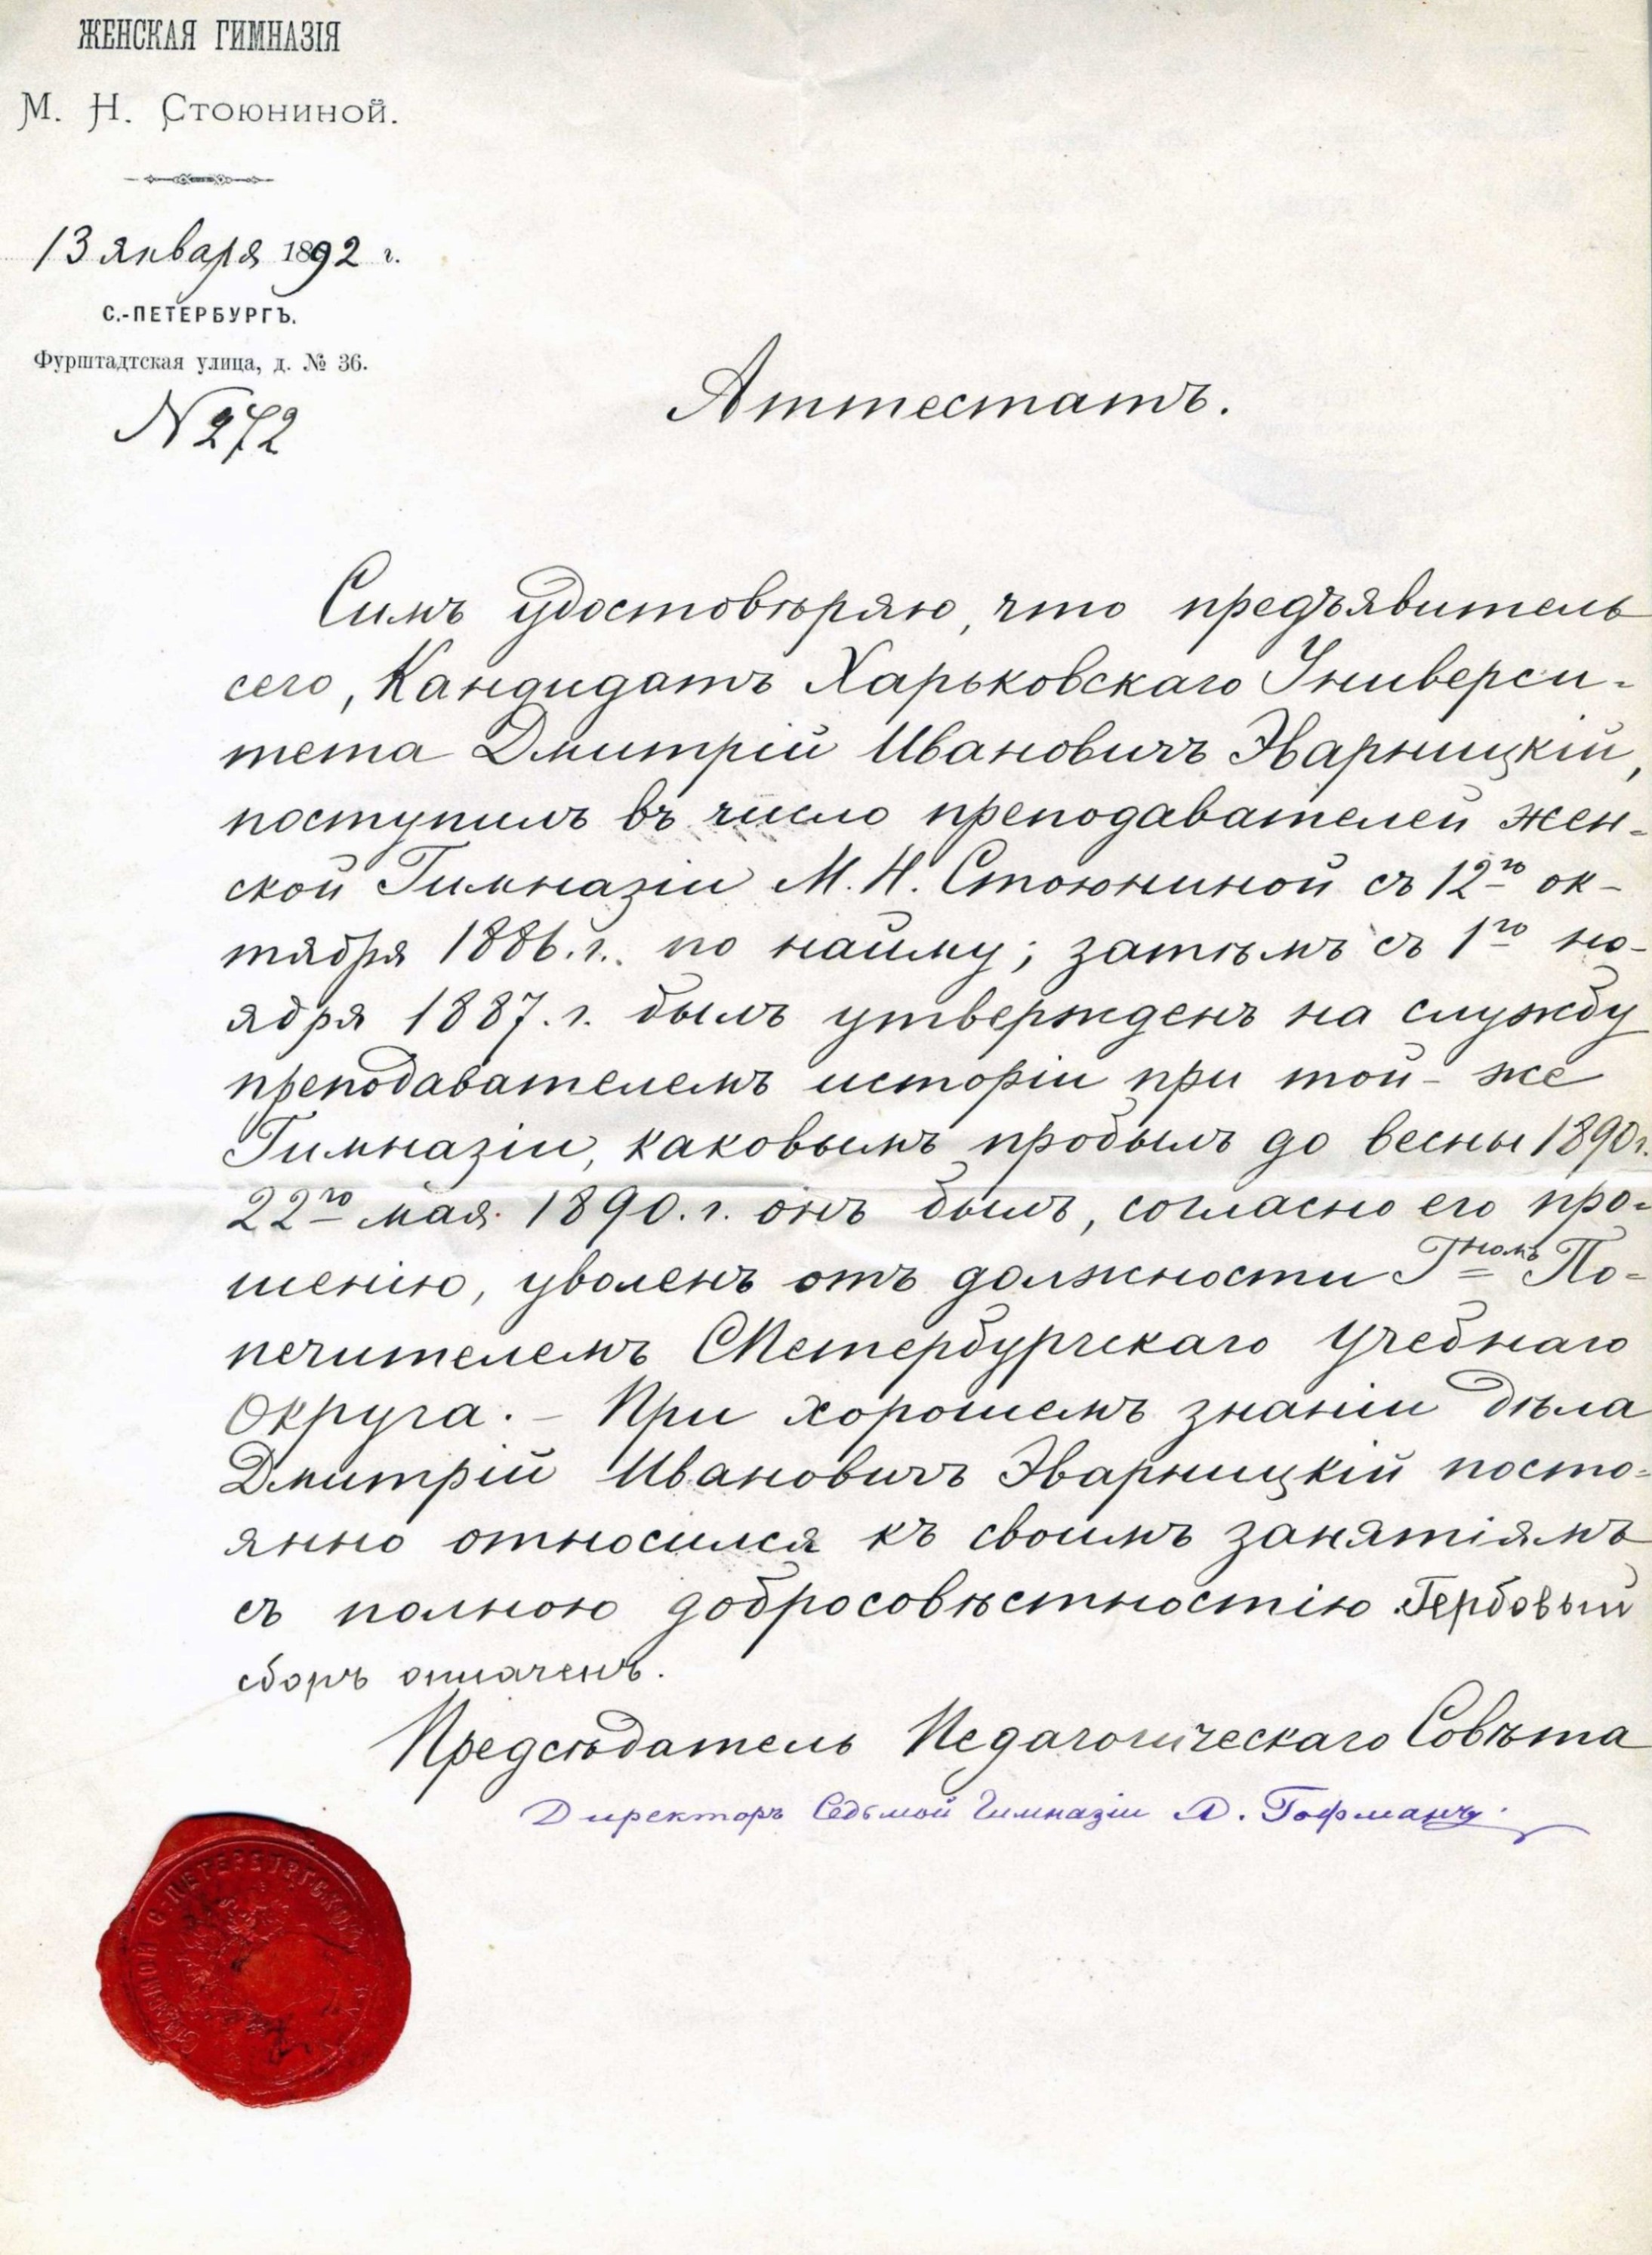 ЖЕНСКАЯ ГИМНАЗІЯ
М. Н. Стоюниной.
13 января 1892 г.
С.-ПЕТЕРБУРГЪ.
Фурштадтская улица, д. № 36.
N 272
Аттестатъ.
Симъ удостовѣряю, что предъявитель
сего, Кандидатъ Харьковскаго Универси-
тета Дмитрій Ивановичъ Эварницкій,
поступилъ въ число преподавателей жен-
ской Гимназіи М. Н. Стоюниной съ 12го ок-
тября 1886.г. по найму; затѣмъ съ 1го но-
ября 1887.г. былъ утвержденъ на службу
преподавателемъ исторіи при той-же
Гимназіи, каковымъ пробылъ до весны 1890г.
22го мая 1890.г. онъ былъ, согласно его про-
шенію, уволенъ отъ должности Гномъ По-
печителемъ СПетербургскаго Учебнаго
Округа. - При хорошемъ знаніи дѣла
Дмитрій Ивановичъ Эварницкій посто-
янно относился къ своимъ занятіямъ
съ полною добросовѣстностію. Гербовый
сборъ оплаченъ.
Предсѣдатель Педагогическаго Совѣта
Директоръ Седьмой Гимназіи А. Гофманъ.
СЕДЬМОЙ С. ПЕТЕРБУРГСКОЙ